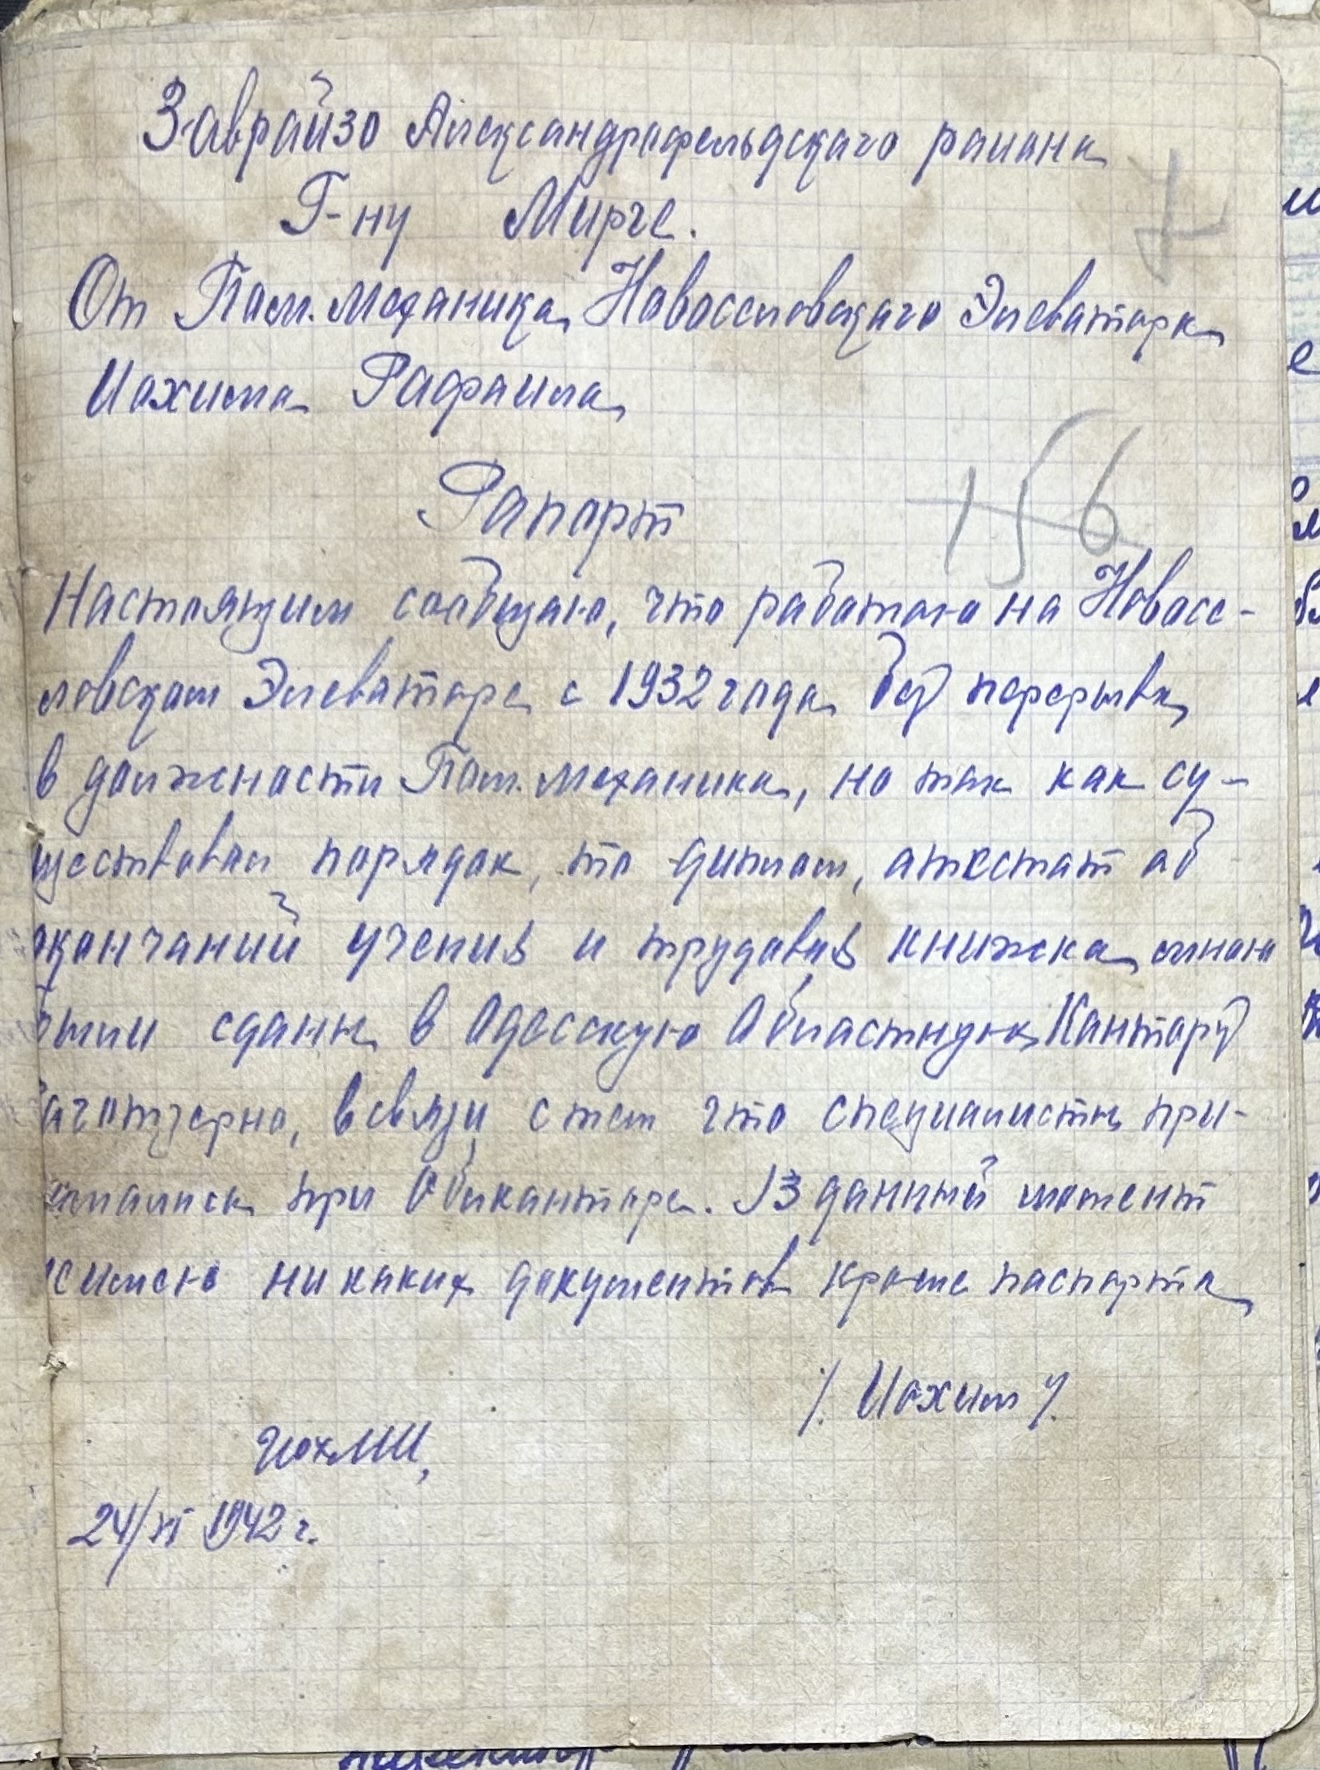 Заврайзо Александрафельдскаго раиона
Г-ну Мирче.
От Пом. механика Новоселовскаго Элеватора
Иохима Рафаила
Рапорт
156
Настоящим сообщаю, что работаю на Новосе-
ловском Элеваторе с 1932 года без перерыва
в должности Пом. механика, но так как су-
ществовал порядок, то диплом, атестат об
окончаний учения и трудовая книжка мною
были сданы в Одесскую Областную Кантору
Заготзерно, в связи с тем что специалисты при-
при Облканторе. В данный момент
не имею ни каких документов кроме паспорта
/. Иохим /.
24/XI 1942 г.